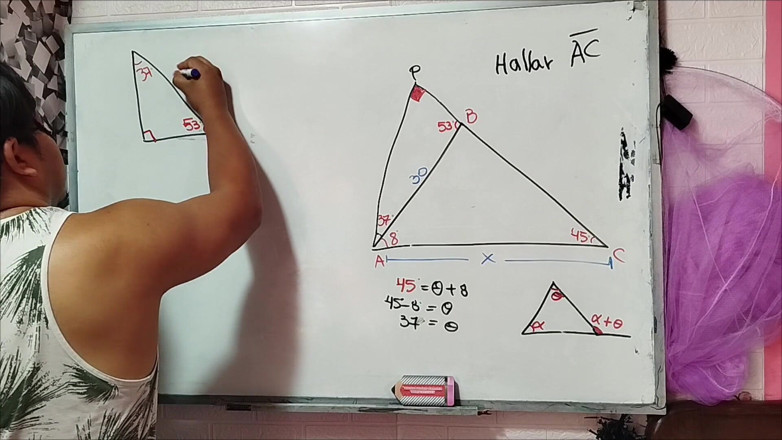 Hallar AC
37
53
P
53
B
30
37
8
45
A
X
C
45 = θ + 8
45 - 8 = θ
37 = θ
θ
α
α + θ